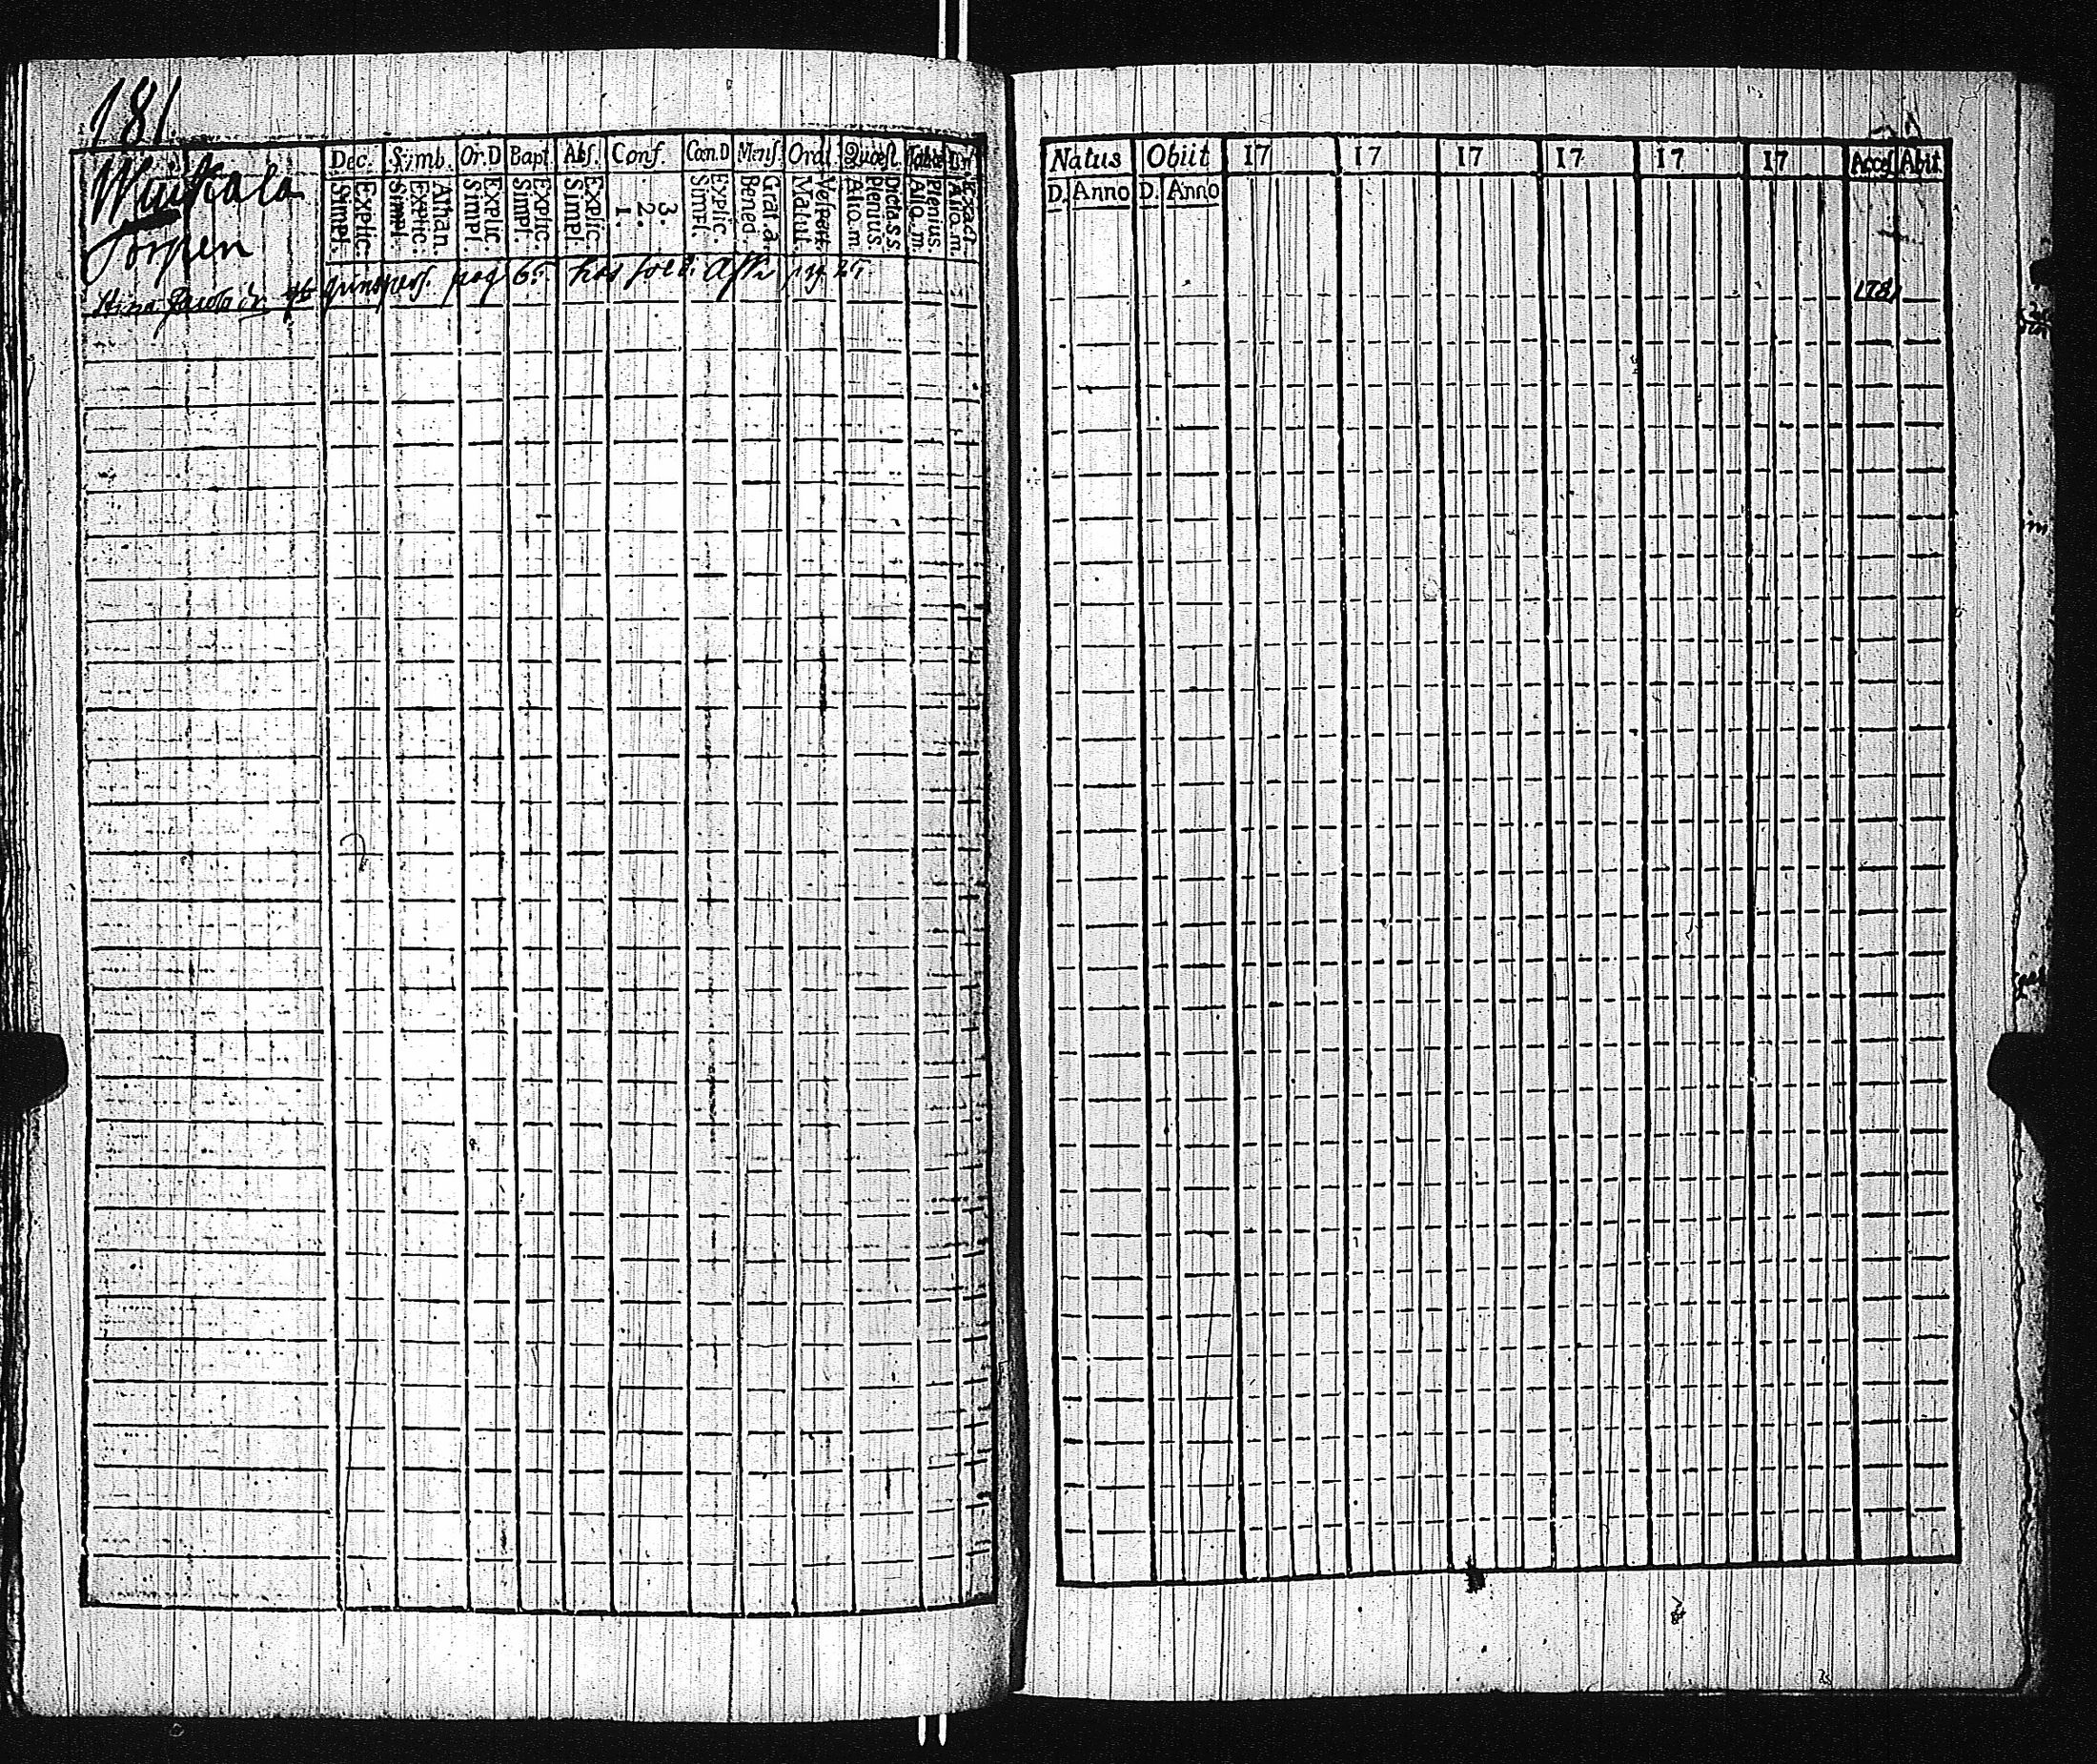 181.
Wuikala
Torpen
Dec. Symb. Or.D Bapt. Abs. Conf. Can.D Mens. Orat. Quæst.
Simpl. Explic. Simpl. Explic. Athan. Simpl. Explic. Simpl. Explic. Simpl. Explic. 1. 2. 3. Simpl. Explic. Bened. Grat.a. Matut. Vespert. Alio.m. Plenius Dicta.s.s. Alio.m. Plenius. Alio.m. Exact.
Stina Jacobs pag 65 hos sold. 25.
Natus Obiit 17 17 17 17 17 17 Acces. Abit
D. Anno D. Anno
1781